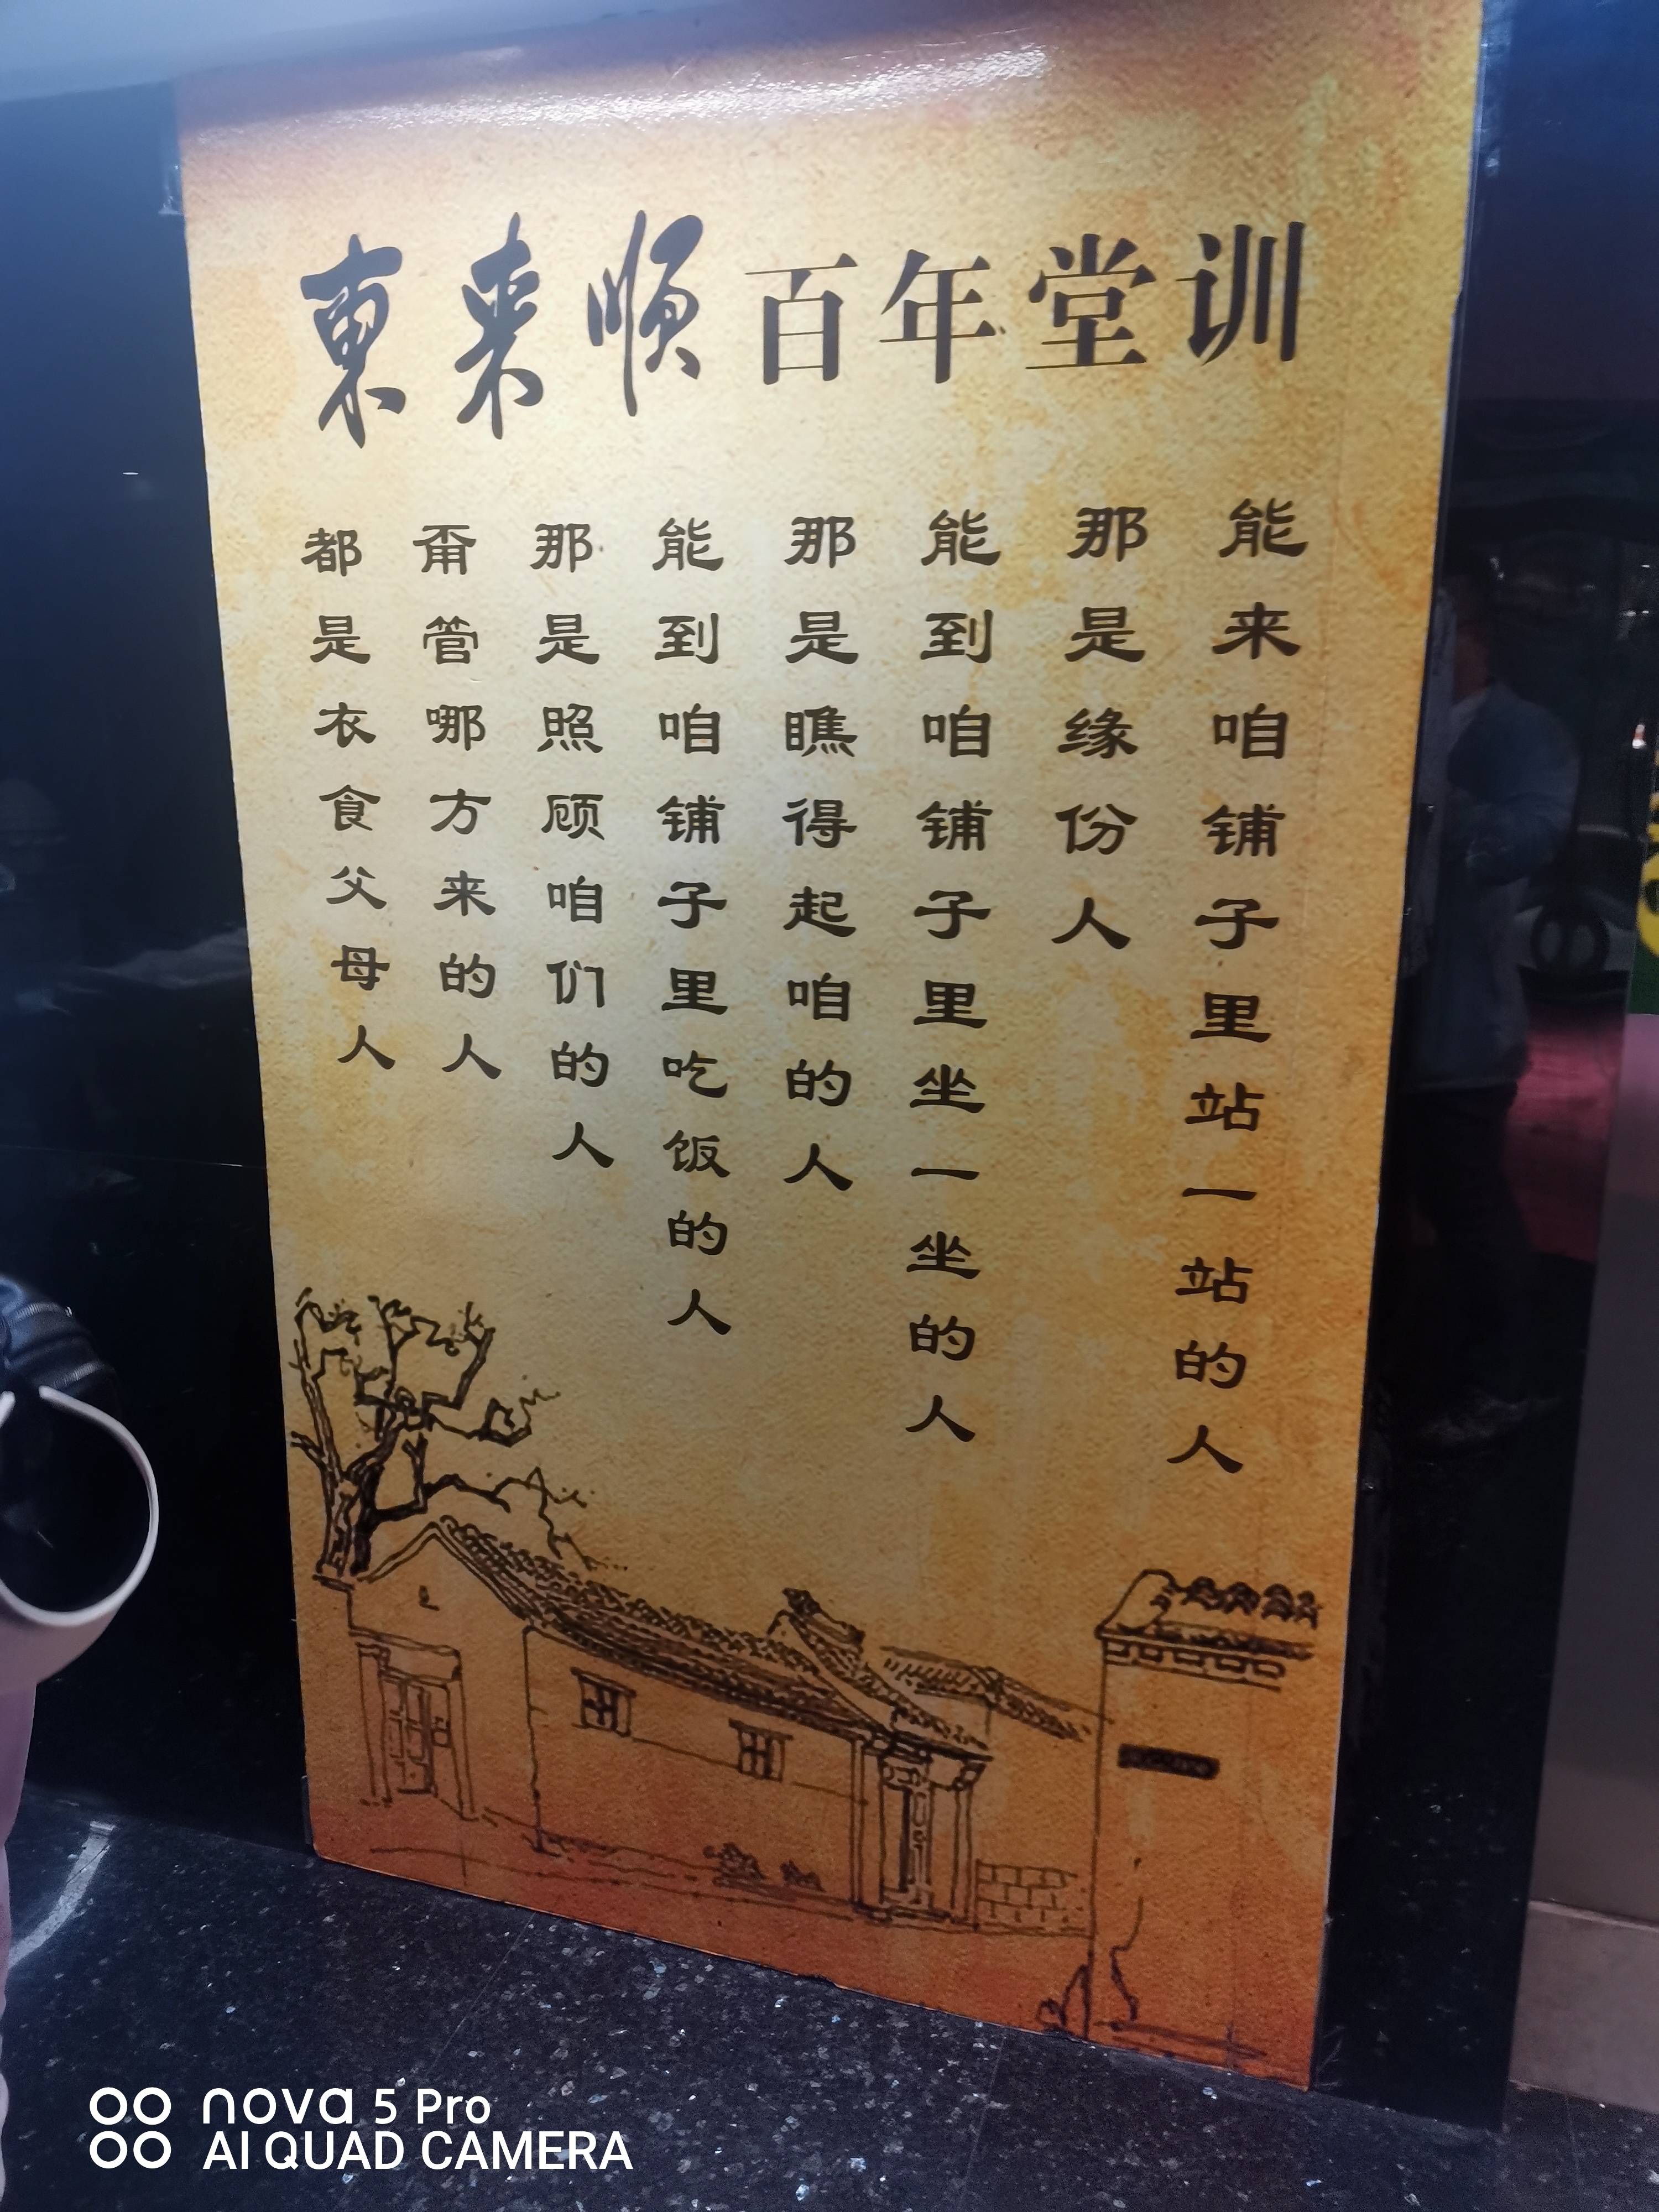 東来顺百年堂训
能来咱铺子里站一站的人
那是缘份人
能到咱铺子里坐一坐的人
那是瞧得起咱的人
能到咱铺子里吃饭的人
那是照顾咱们的人
甭管哪方来的人
都是衣食父母人
nova 5 Pro
AI QUAD CAMERA